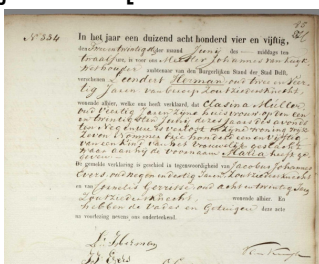 No 334
In het jaar een duizend acht honderd vier en vijftig,
den drie en twintigste der maand Junij des — middags ten
twaalf ure, is voor ons Meester Johannes van Kuyk
Wethouder ambtenaar van den Burgerlijken Stand der Stad Delft,
verschenen Leendert Herman, oud twee en
tig Jaren van beroep Zoutziedersknecht,
wonende alhier, welke ons heeft verklaard, dat Clasina Mullen
oud veertig Jaren zijne huisvrouw op den een
en twintigsten Junij dezes Jaars des avonds
ten negen ure, is verlost, in zijne woning wijk
zeven nommer honderd een en vijftig
van een Kind van het vrouwelijk geslacht
waar aan hij de voornaam Maria heeft ge
geven —
De gemelde verklaring is geschied in tegenwoordigheid van Jacobus Johannes
Evers, oud negen en dertig Jaren, Zoutziedersknecht
en van Cornelis Gerritse oud acht en twintig Jaren
Zoutziedersknecht, wonende alhier. En
hebben de Vader en Getuigen deze acte
na voorlezing nevens ons onderteekend.
L. Herman
JJ Evers